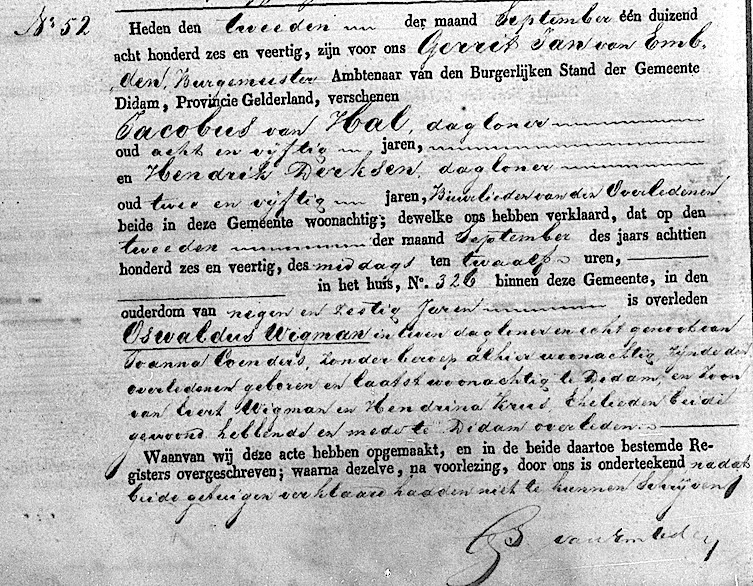 No 52
Heden den tweeden der maand September één duizend
acht honderd zes en veertig, zijn voor ons Gerrit Jan van Emb-
den, Burgemeister Ambtenaar van den Burgerlijken Stand der Gemeente
Didam, Provincie Gelderland, verschenen
Jacobus van Hal, dagloner
oud acht en vijftig jaren,
en Hendrik Derksen, dagloner
oud twee en vijftig jaren, Buurlieden van den Overledenen
beide in deze Gemeente woonachtig; dewelke ons hebben verklaard, dat op den
tweeden der maand September des jaars achttien
honderd zes en veertig, des middags ten twaalf uren,
in het huis, No. 326 binnen deze Gemeente, in den
ouderdom van negen en zestig Jaren is overleden
Oswaldus Wegman in leven dagloner en echtgenoot van
Joanna Coenders, zonder beroep alhier woonachtig, zijnde de
overledenen geboren en laatst woonachtig te Didam, en zoon
van Evert Wigman en Hendrina Krus, Ehelieden beide
gewoond hebbende en mede te Didam overleden.
Waanvan wij deze acte hebben opgemaakt, en in de beide daartoe bestemde Re-
gisters overgeschreven; waarna dezelve, na voorlezing, door ons is onderteekend nadat
beide getuigen verklaard hadden niet te kunnen Schrijven
van Embden